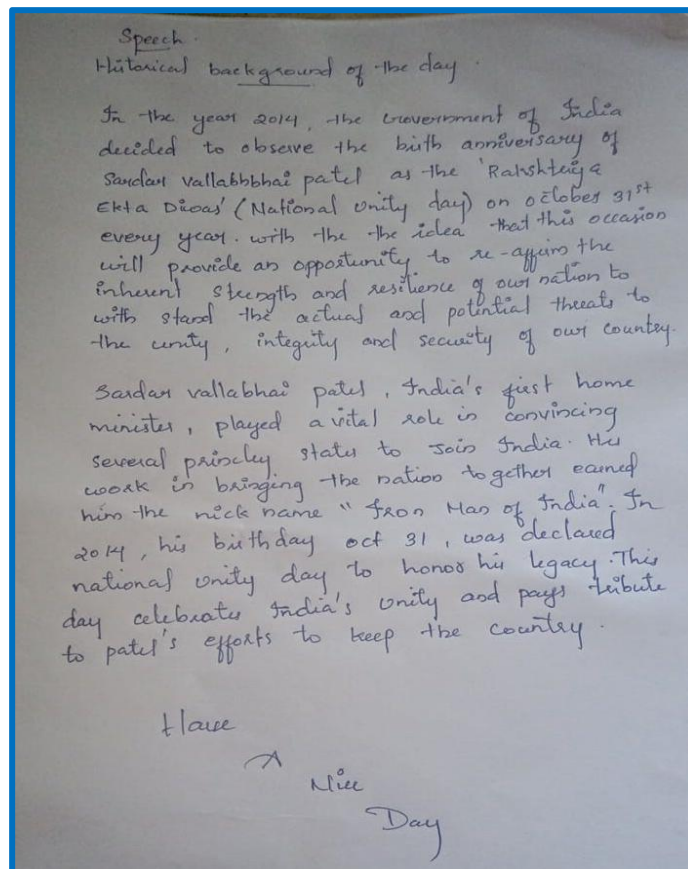 Speech.
Historical background of the day.
In the year 2014, the Government of India
decided to observe the birth anniversary of
Sardar vallabhbhai patel as the 'Rahshteiya
Ekta Diwas' (National Unity day) on october 31st
every year. with the the idea that this occasion
will provide an opportunity to re-affirm the
inherent strength and resilience of our nation to
with stand the actual and potential threats to
the unity, integrity and security of our country.
Sardar vallabhai patel, India's first home
minister, played a vital role in convincing
several princley states to Join India. His
work in bringing the nation together earned
him the nick name "Iron Man of India". In
2014, his birthday oct 31, was declared
national unity day to honor his legacy. This
day celebrates India's unity and pays tribute
to patel's efforts to keep the country.
Have
A
Nice
Day